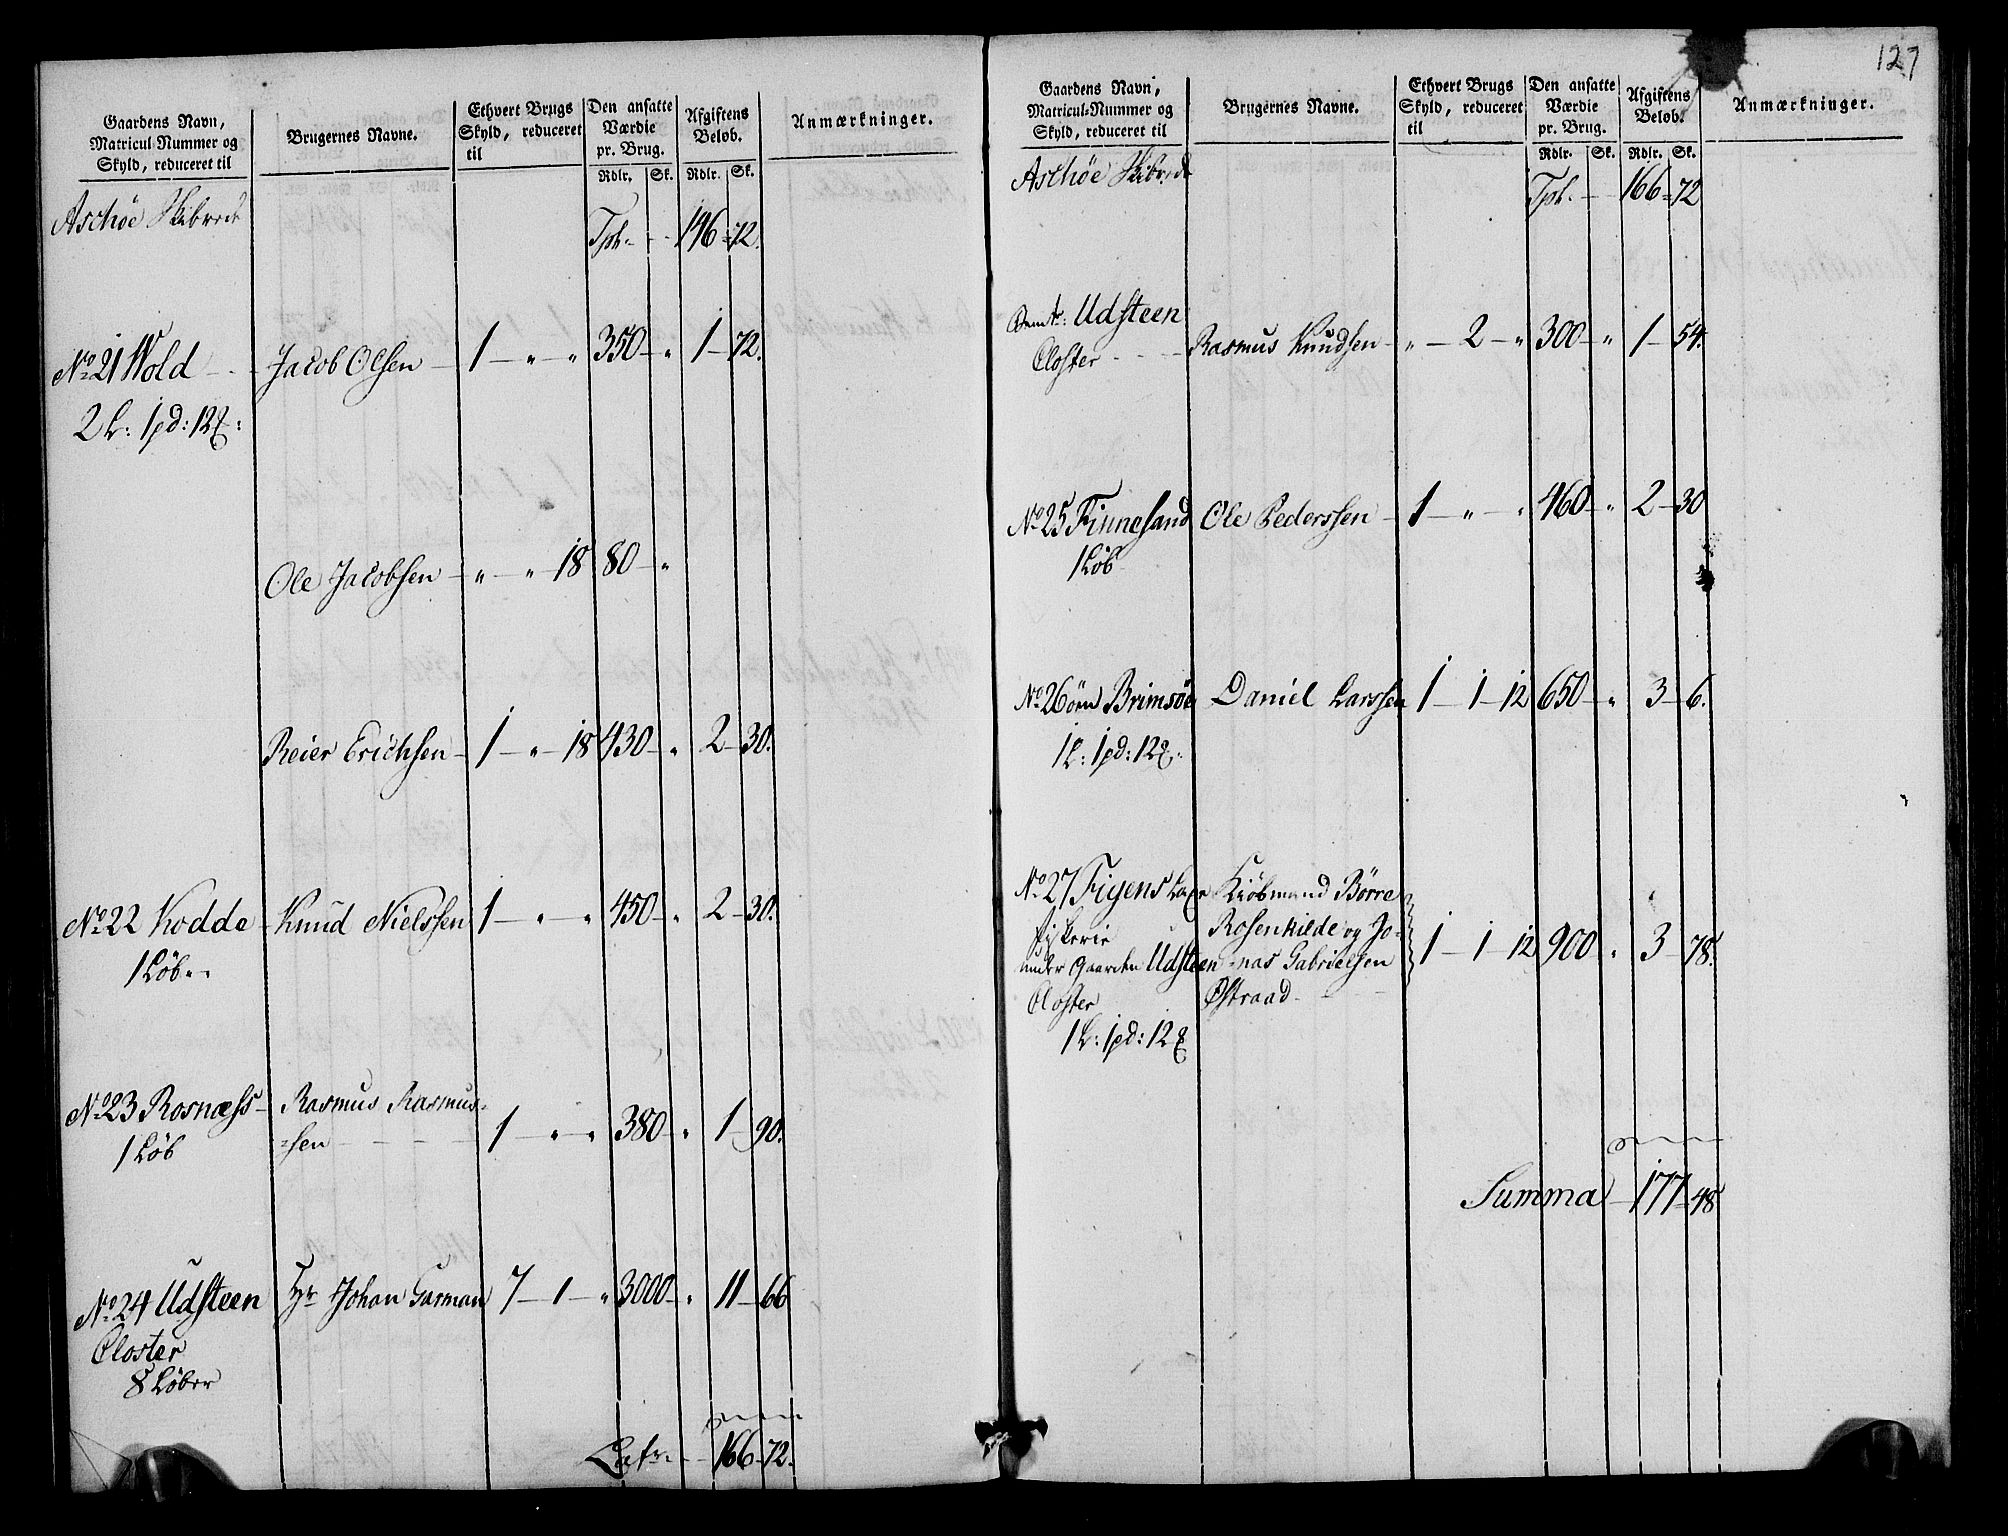 Gaardens Navn,
Matricul-Nummer og
Skyld, reduceret til
Brugernes Navne.
Ethvert Brugs
Skyld, reduceret
til
Den ansatte
Værdie
pr. Brug.
Afgiftens
Beløb.
Anmærkninger.
Rdlr. Sk. Rdlr. Sk.
Aschöe Skibrede
Tpt. - - 146 - 72.
No 21 Wold - - Jacob Olsen - 1 - " - " 350 - " 1 - 72.
2 L: 1 pd: 12 ℔:
Ole Jacobsen - " - " 18 80 - "
Reier Erichsen - 1 - " - 18 430 - " 2 - 30.
No 22 Kodde - Knud Nielssen 1 - " - " 450 - " 2 - 30.
1 Løb - -
No 23 Rosnæss - Rasmus Rasmus-
1 Løb -sen - - - - 1 - " - " 380 - " 1 - 90.
No 24 Udsteen Hr Johan Garman 7 - 1 - " 3000 - " 11 - 66
Closter
8 Løber
Latr. - - 166 - 72.
127
Gaardens Navn,
Matricul-Nummer og
Skyld, reduceret til
Brugernes Navne.
Ethvert Brugs
Skyld, reduceret
til
Den ansatte
Værdie
pr. Brug.
Afgiftens
Beløb.
Anmærkninger.
Rdlr. Sk. Rdlr. Sk.
Aschöe Skibrede
Tpt. - - 166 - 72
Udsteen
Closter - - - Rasmus Knudsen - " - 2 - " 300 - " 1 - 54.
No 25 Finnesand Ole Pederssen - 1 - " - " 460 - " 2 - 30
1 Løb
No 26 öen Brimsöe Daniel Larssen 1 - 1 - 12 650 - " 3 - 6.
1 L: 1 pd: 12 ℔:
No 27 Figens Laxe Kiöbmand Börre
fiskerie Rosenkilde og Jo-
under Gaarden Udsteen -nas Gabrielsen 1 - 1 - 12 900 " 3 - 78.
Closter Østraad - - -
1 L: 1 pd: 12 ℔
Summa - 177 - 48